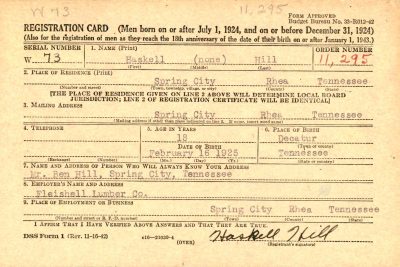 W 73
11,295
REGISTRATION CARD—(Men born on or after July 1, 1924, and on or before December 31, 1924)
Form Approved
Budget Bureau No. 33-R012-42
(Also for the registration of men as they reach the 18th anniversary of the date of their birth on or after January 1, 1943.)
SERIAL NUMBER
1. NAME (Print)
ORDER NUMBER
W 73
Haskell (none) Hill
11,295
(First) (Middle) (Last)
2. PLACE OF RESIDENCE (Print)
Spring City Rhea Tennessee
(Number and street) (Town, township, village, or city) (County) (State)
[THE PLACE OF RESIDENCE GIVEN ON LINE 2 ABOVE WILL DETERMINE LOCAL BOARD
JURISDICTION; LINE 2 OF REGISTRATION CERTIFICATE WILL BE IDENTICAL]
3. MAILING ADDRESS
Spring City Rhea Tennessee
[Mailing address if other than place indicated on line 2. If same, insert word same]
4. TELEPHONE
5. AGE IN YEARS
6. PLACE OF BIRTH
18
Decatur
DATE OF BIRTH
(Town or county)
February 15 1925
Tennessee
(Exchange) (Number)
(Mo.) (Day) (Yr.)
(State or country)
7. NAME AND ADDRESS OF PERSON WHO WILL ALWAYS KNOW YOUR ADDRESS
Mr. Ben Hill, Spring City, Tennessee
8. EMPLOYER'S NAME AND ADDRESS
Fleishell Lumber Co.
9. PLACE OF EMPLOYMENT OR BUSINESS
Spring City Rhea Tennessee
(Number and street or R. F. D. number) (Town) (County) (State)
I AFFIRM THAT I HAVE VERIFIED ABOVE ANSWERS AND THAT THEY ARE TRUE.
DSS Form 1 (Rev. 11-16-42)
(OVER)
Haskell Hill
(Registrant's signature)